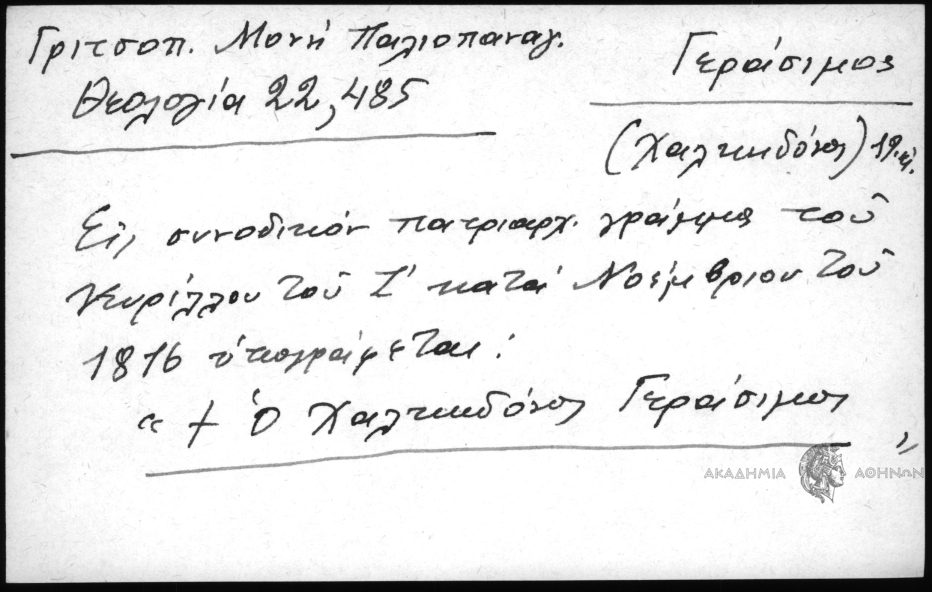 Γριτσοπ. Μονή Παλιοπαναγ.
Θεολογία 22, 485
Γεράσιμος
(Χαλκηδόνος) 19. αἰ.
Εἰς συνοδικόν πατριαρχ. γράμμα τοῦ
Κυρίλλου τοῦ Ϛ' κατά Νοέμβριον τοῦ
1816 ὑπογράφεται:
“ + Ὁ Χαλκηδόνος Γεράσιμος ”
ΑΚΑΔΗΜΙΑ ΑΘΗΝΩΝ